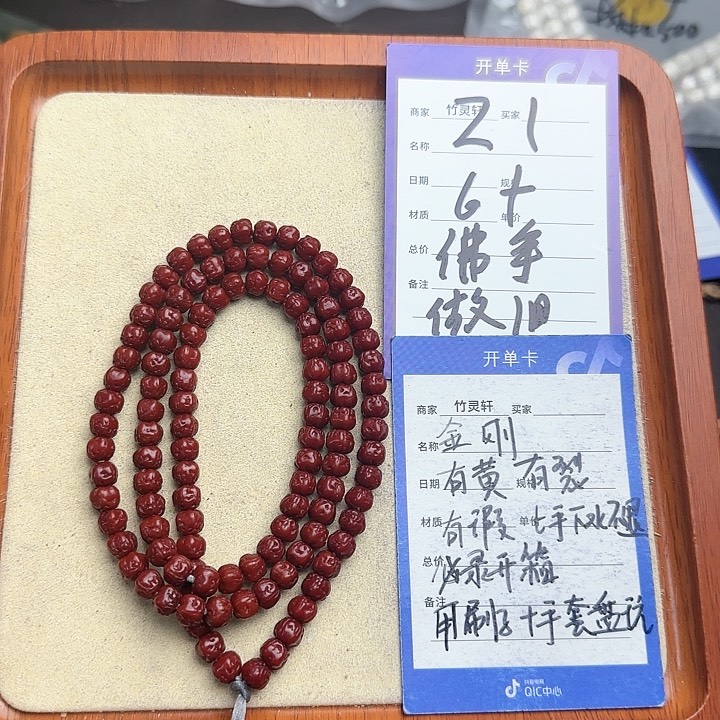 开单卡
商家 竹灵轩 买家
Z1
名称
日期 规
6十
材质 单价
总价
佛手
备注
做旧
开单卡
商家 竹灵轩 买家
名称 金刚
日期 有黄有裂 规格
材质 有瑕 单价 上手下水不退
总价 必录开箱
备注
用刷子+手套盘玩
抖音电商
QIC中心